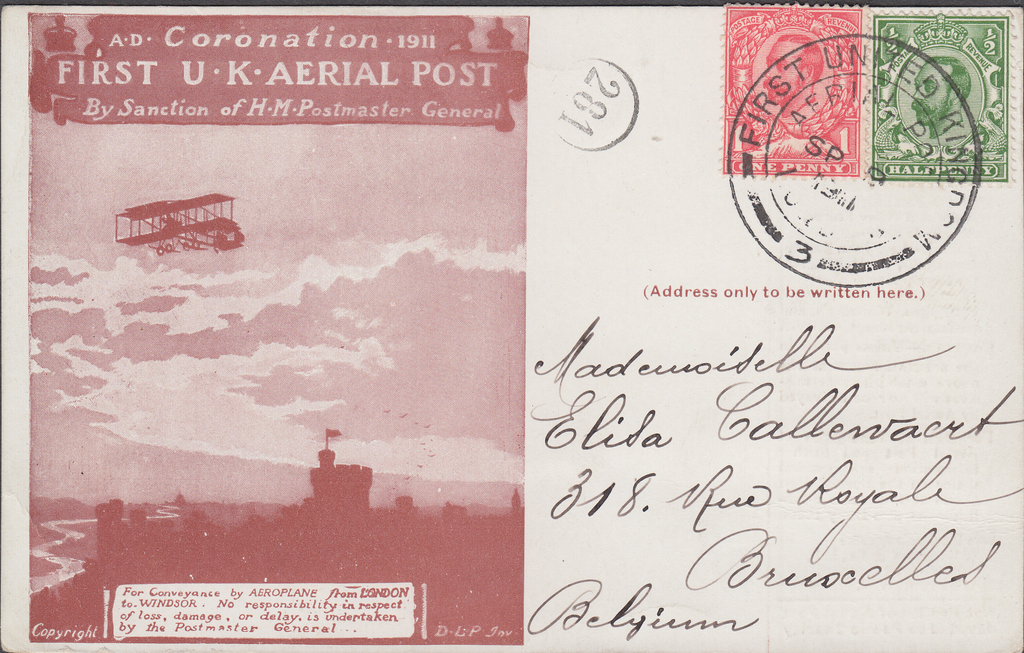 A·D· Coronation · 1911
FIRST U·K·AERIAL POST
By Sanction of H·M·Postmaster General
For Conveyance by AEROPLANE from LONDON
to WINDSOR. No responsibility in respect
of loss, damage, or delay, is undertaken
by the Postmaster General...
Copyright
D·L·P Inv.
281
POSTAGE REVENUE
1
ONE PENNY
POSTAGE REVENUE
½ ½
HALFPENNY
FIRST UNITED KINGDOM
AERIAL
SP
1911
3
(Address only to be written here.)
Mademoiselle
Elisa Callewaert
318. Rue Royale
Bruxelles
Belgium